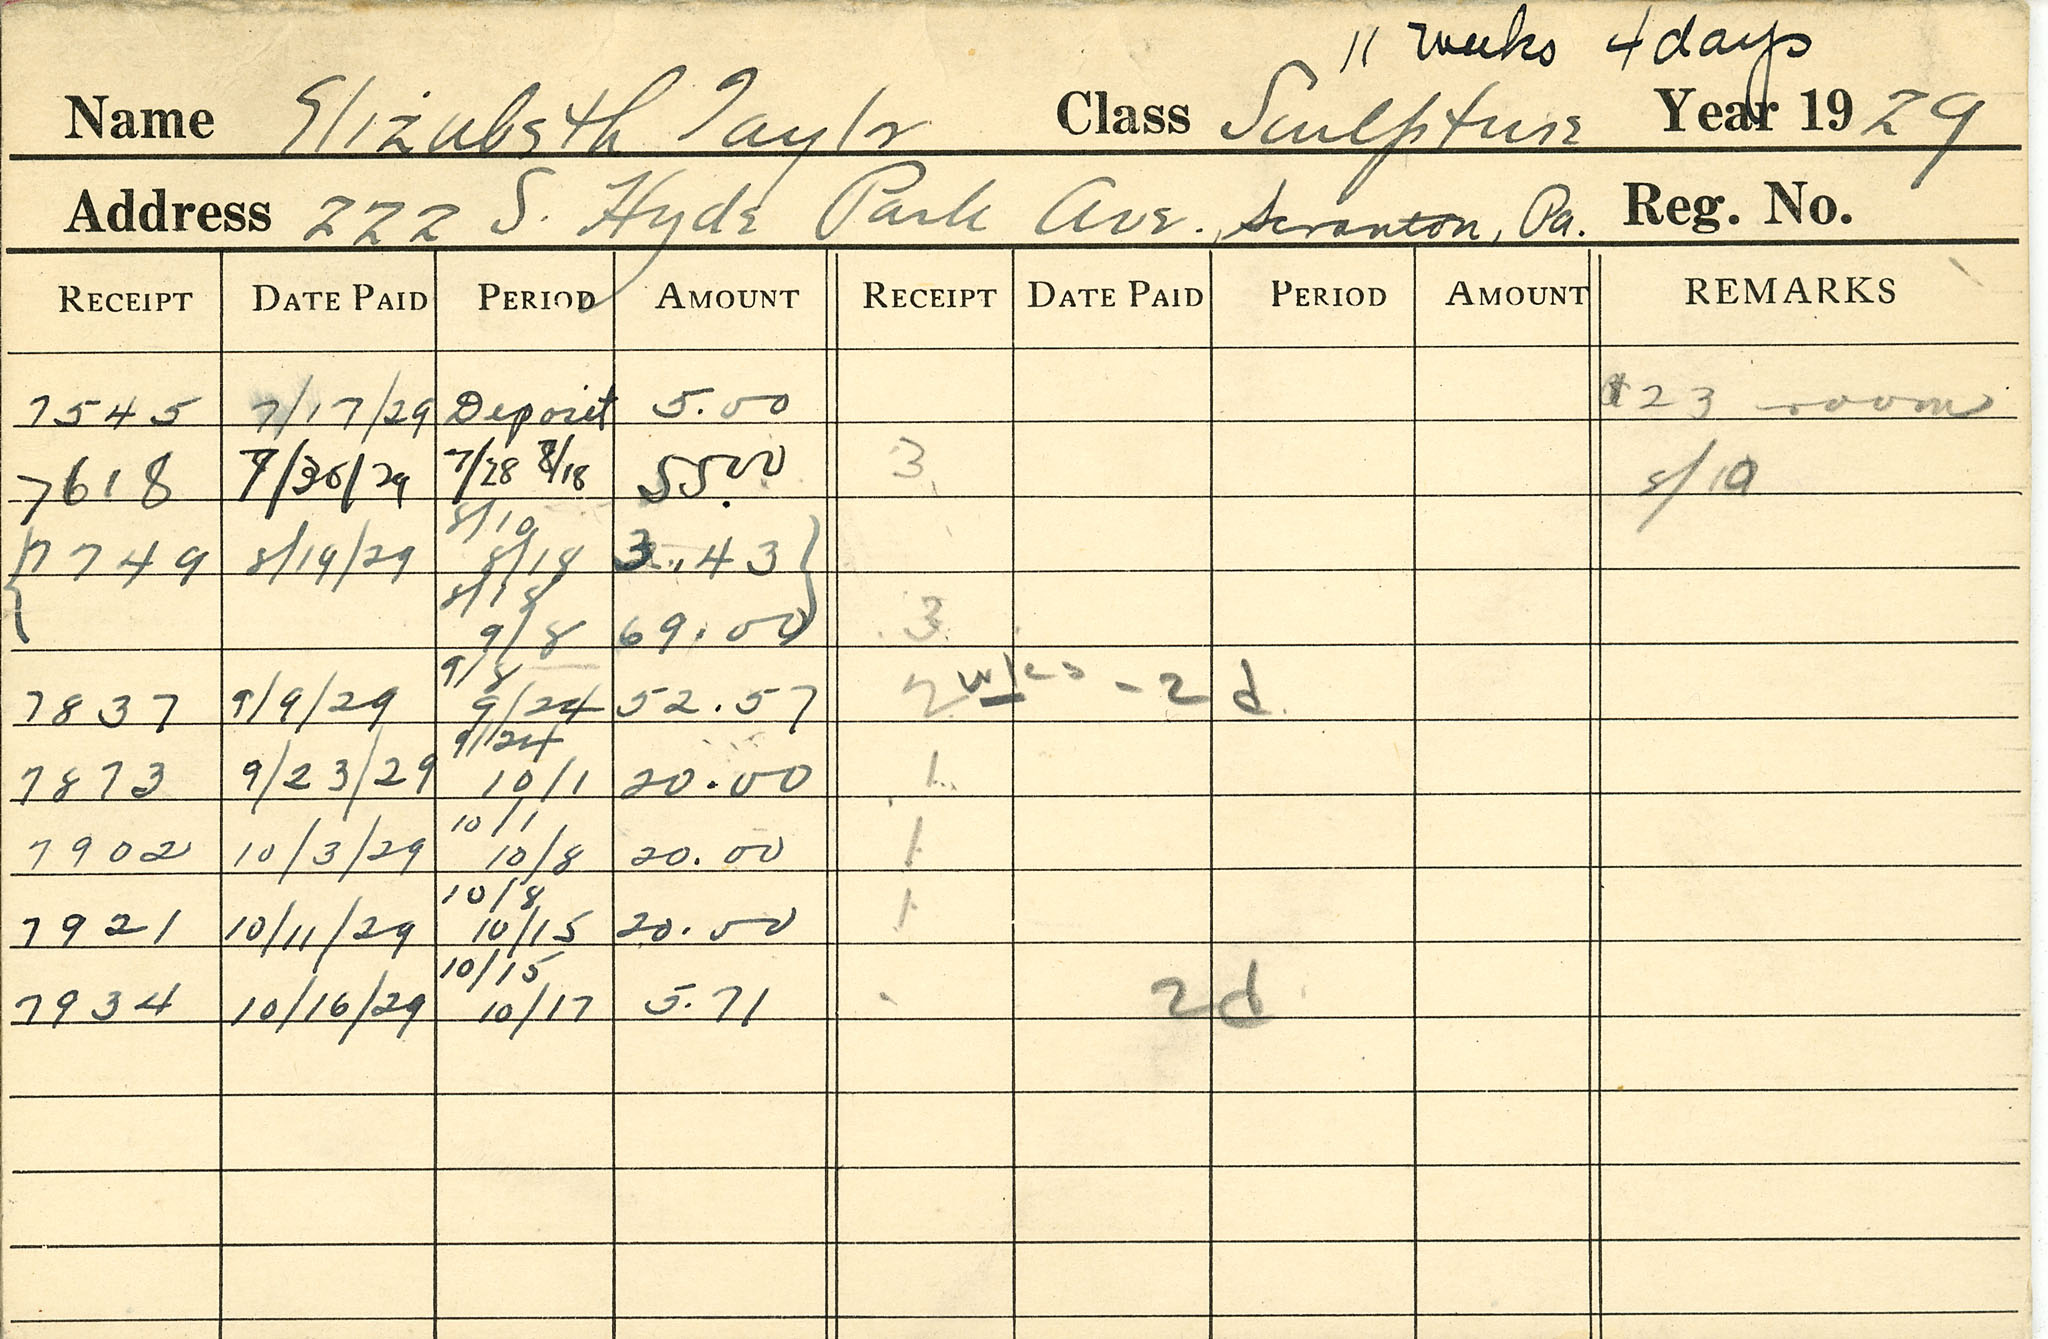 11 weeks 4 days
Name Elizabeth Taylr Class Sculpture Year 1929
Address 222 S. Hyde Park Ave., Scranton, Pa. Reg. No.
RECEIPT DATE PAID PERIOD AMOUNT RECEIPT DATE PAID PERIOD AMOUNT REMARKS
7545 7/17/29 Deposit 5.00 23 room
7618 7/30/29 7/28 8/18 55.00 3 8/10
8/10
7749 8/19/29 8/18 3.43
8/18
9/8 69.00 3
9/8
7837 9/9/29 9/24 52.57 2 wks - 2 d.
9/24
7873 9/23/29 10/1 20.00 1
10/1
7902 10/3/29 10/8 20.00 1
10/8
7921 10/11/29 10/15 20.00 1
10/15
7934 10/16/29 10/17 5.71 2d